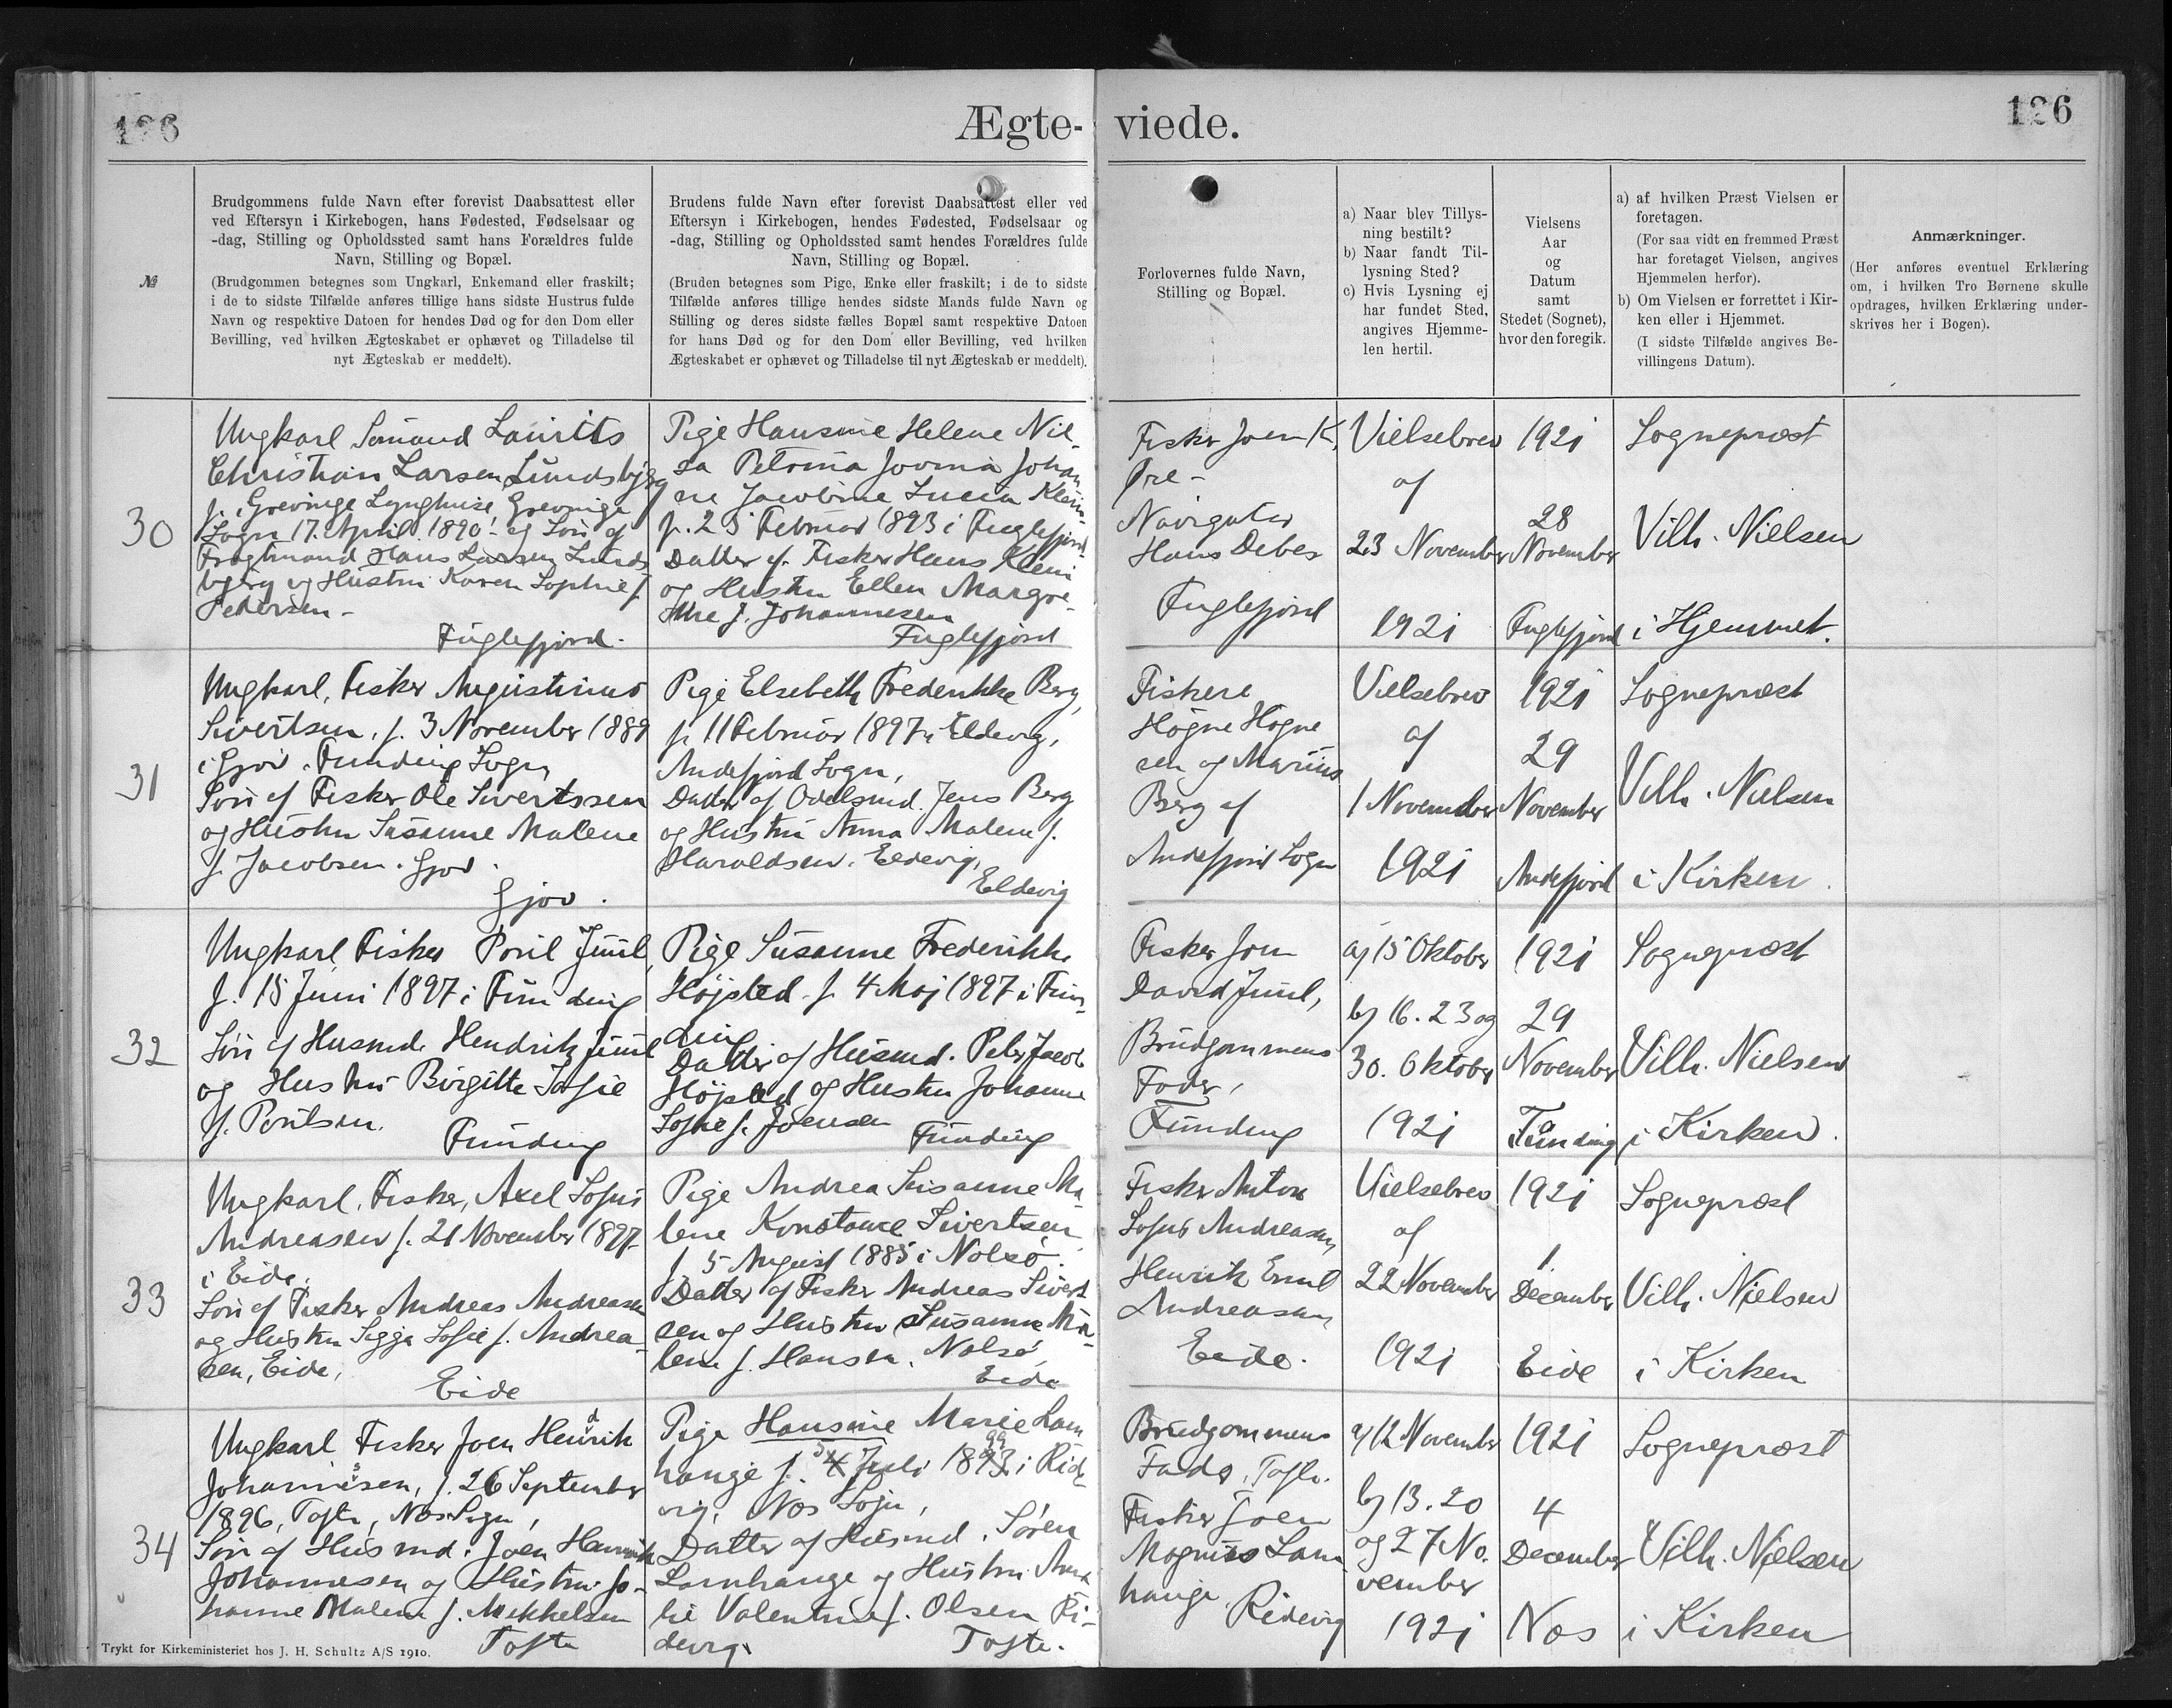 126
Ægte- viede.
126
№
Brudgommens fulde Navn efter forevist Daabsattest eller
ved Eftersyn i Kirkebogen, hans Fødested, Fødselsaar og
-dag, Stilling og Opholdssted samt hans Forældres fulde
Navn, Stilling og Bopæl.
(Brudgommen betegnes som Ungkarl, Enkemand eller fraskilt;
i de to sidste Tilfælde anføres tillige hans sidste Hustrus fulde
Navn og respektive Datoen for hendes Død og for den Dom eller
Bevilling, ved hvilken Ægteskabet er ophævet og Tilladelse til
nyt Ægteskab er meddelt).
Brudens fulde Navn efter forevist Daabsattest eller ved
Eftersyn i Kirkebogen, hendes Fødested, Fødselsaar og
-dag, Stilling og Opholdssted samt hendes Forældres fulde
Navn, Stilling og Bopæl.
(Bruden betegnes som Pige, Enke eller fraskilt; i de to sidste
Tilfælde anføres tillige hendes sidste Mands fulde Navn og
Stilling og deres sidste fælles Bopæl samt respektive Datoen
for hans Død og for den Dom eller Bevilling, ved hvilken
Ægteskabet er ophævet og Tilladelse til nyt Ægteskab er meddelt).
Forlovernes fulde Navn,
Stilling og Bopæl.
a) Naar blev Tillys-
ning bestilt?
b) Naar fandt Til-
lysning Sted?
c) Hvis Lysning ej
har fundet Sted,
angives Hjemme-
len hertil.
Vielsens
Aar
og
Datum
samt
Stedet (Sognet),
hvor den foregik.
a) af hvilken Præst Vielsen er
foretagen.
(For saa vidt en fremmed Præst
har foretaget Vielsen, angives
Hjemmelen herfor).
b) Om Vielsen er forrettet i Kir-
ken eller i Hjemmet.
(I sidste Tilfælde angives Be-
villingens Datum).
Anmærkninger.
(Her anføres eventuel Erklæring
om, i hvilken Tro Børnene skulle
opdrages, hvilken Erklæring under-
skrives her i Bogen).
30
Ungkarl Sømand Laurits
Christian Larsen Lundsbjerg
f. i Grevinge Lynghuse, Grevinge
Sogn 17. April 1890 Søn af
Hans Larsen Lunds
bjerg og Hustru Karen Sophie f.
Pedersen -
Fuglefjord.
Pige Hansine Helene Nil-
sa Petrina Jovina Johan
ne Jacobine Lucia Klein
f. 25 Februar 1893 i Fuglefjord
Datter af Fisker Hans Klein
og Hustru Ellen Margre-
the f. Johannesen
Fuglefjord
Fisker Joen K.
Øre -
Navigatør
Hans Debes
Fuglefjord
Vielsebrev
af
23 November
1921
1921
28
November
Fuglefjord
Sognepræst
Vilh. Nielsen
i Hjemmet.
31
Ungkarl, Fisker Augustinus
Sivertsen, f. 3 November 1889
i Gjov, Funding Sogn,
Søn af Fisker Ole Sivertssen
og Hustru Susanne Malene
f. Jacobsen. Gjov.
Gjov.
Pige Elsebeth Frederikke Berg,
f. 11 Februar 1897 i Eldevig,
Andefjord Sogn,
Datter af Odelsmd. Jens Berg
og Hustru Anna Malene f.
Haraldsen. Eldevig,
Eldevig
Fiskere
Høgne Høgne
sen og Marius
Berg af
Andefjord Sogn
Vielsebrev
af
1 November
1921
1921
29
November
Andefjord
Sognepræst
Vilh. Nielsen
i Kirken.
32
Ungkarl Fisker Poul Juul,
f. 15 Juni 1897 i Funding
Søn af Husmd. Hendrik Juul
og Hustru Birgitte Sofie
f. Poulsen.
Funding
Pige Susanne Frederikke
Højsted f. 4 Maj 1897 i Fun-
ding
Datter af Husmd. Peter Jacob
Højsted og Hustru Johanne
Sofie f. Joensen
Funding
Fisker Jon
David Juul,
Brudgommens
Fader,
Funding
a) 15 Oktober
b) 16. 23 og
30. Oktober
1921
1921
29
November
Funding
Sognepræst
Vilh. Nielsen
i Kirken.
33
Ungkarl, Fisker, Axel Sofus
Andreasen f. 21 November 1897
i Eide,
Søn af Fisker Andreas Andreasen
og Hustru Sigga Sofie f. Andrea-
sen, Eide,
Eide
Pige Andrea Susanne Ma
lene Konstance Sivertsen
f. 5 August 1885 i Nolsö
Datter af Fisker Andreas Sivert
sen og Hustru Susanne Ma-
lene f. Hansen. Nolsö
Eide
Fisker Anton
Sofus Andreasen,
Henrik Emil
Andreasen,
Eide.
Vielsebrev
af
22 November
1921
1921
1
December
Eide
Sognepræst
Vilh. Nielsen
i Kirken
34
Ungkarl Fisker Joen Hendrik
Johannesen, f. 26 September
1896, Tofte, Nes Sogn,
Søn af Husmd. Joen Hendrik
Johannesen og Hustru Jo-
hanne Malene f. Mikkelsen
Tofte
Pige Hansine Marie Lam
hauge f. Juli 1893 99 i Ride
vig, Nes Sogn,
Datter af Husmd. Sören
Lamhauge og Hustru
Valentine f. Olsen Ri-
devig.
Tofte.
Brudgommens
Fader, Tofte.
Fisker Joen
Magnus Lam
hauge. Ridevig
a) 12 November
b) 13. 20
og 27 No.
vember
1921
1921
4
December
Nes
Sognepræst
Vilh. Nielsen
i Kirken
Trykt for Kirkeministeriet hos J. H. Schultz A/S 1910.